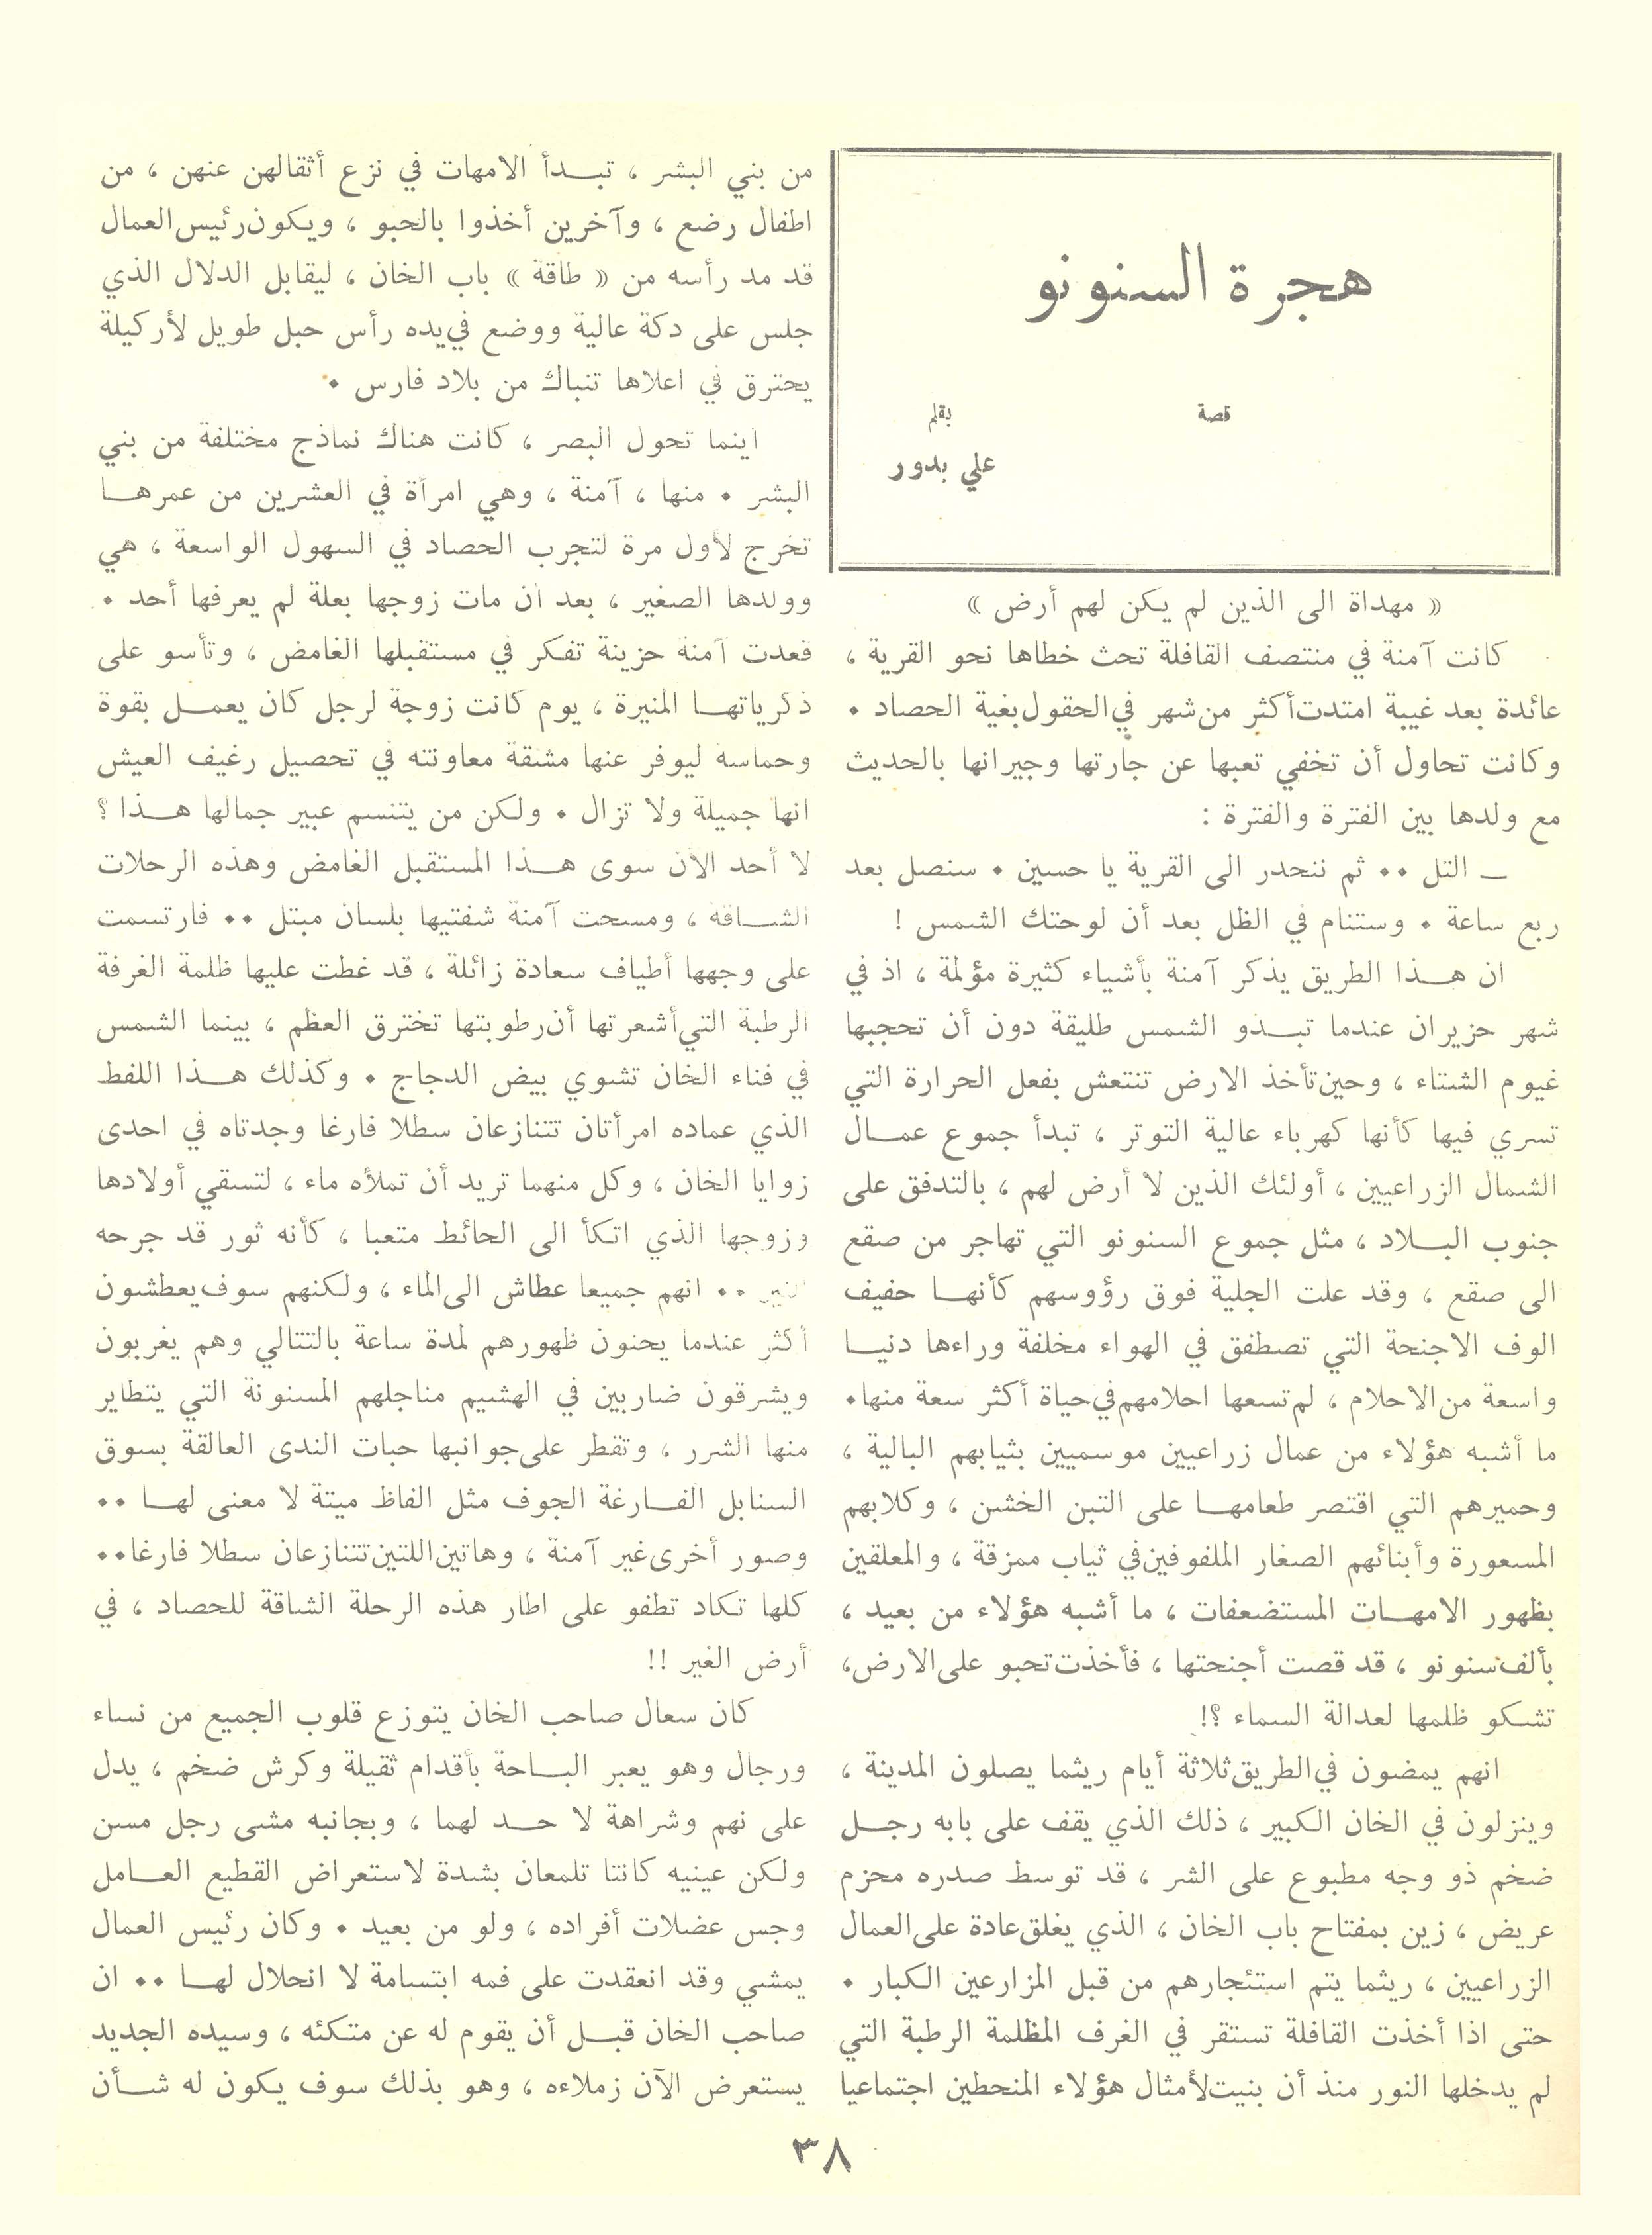 هجرة السنونو
قصة
بقلم
علي بدور
« مهداة الى الذين لم يكن لهم أرض »
كانت آمنة في منتصف القافلة تحث خطاها نحو القرية ،
عائدة بعد غيبة امتدت أكثر من شهر في الحقول بغية الحصاد .
وكانت تحاول أن تخفي تعبها عن جارتها وجيرانها بالحديث
مع ولدها بين الفترة والفترة :
ــ التل .. ثم ننحدر الى القرية يا حسين . سنصل بعد
ربع ساعة . وستنام في الظل بعد أن لوحتك الشمس !
ان هــذا الطريق يذكر آمنة بأشياء كثيرة مؤلمة ، اذ في
شهر حزيران عندما تبــدو الشمس طليقة دون أن تحجبها
غيوم الشتاء ، وحين تأخذ الارض تنتعش بفعل الحرارة التي
تسري فيها كأنها كهرباء عالية التوتر ، تبدأ جموع عمــال
الشمال الزراعيين ، أولئك الذين لا أرض لهم ، بالتدفق على
جنوب البــلاد ، مثل جموع السنونو التي تهاجر من صقع
الى صقع ، وقد علت الجلبة فوق رؤوسهم كأنهــا حفيف
الوف الاجنحة التي تصطفق في الهواء مخلفة وراءها دنيــا
واسعة من الاحلام ، لم تسعها احلامهم في حياة أكثر سعة منها.
ما أشبه هؤلاء من عمال زراعيين موسميين بثيابهم البالية ،
وحميرهم التي اقتصر طعامهــا على التبن الخشن ، وكلابهم
المسعورة وأبنائهم الصغار الملفوفين في ثياب ممزقة ، والمعلقين
بظهور الامهــات المستضعفات ، ما أشبه هؤلاء من بعيد ،
بألف سنونو ، قد قصت أجنحتها ، فأخذت تحبو على الارض،
تشكو ظلمها لعدالة السماء ؟!
انهم يمضون في الطريق ثلاثة أيام ريثما يصلون المدينة ،
وينزلون في الخان الكبير ، ذلك الذي يقف على بابه رجــل
ضخم ذو وجه مطبوع على الشر ، قد توسط صدره محزم
عريض ، زين بمفتاح باب الخان ، الذي يغلق عادة على العمال
الزراعيين ، ريثما يتم استئجارهم من قبل المزارعين الكبار .
حتى اذا أخذت القافلة تستقر في الغرف المظلمة الرطبة التي
لم يدخلها النور منذ أن بنيت لأمثال هؤلاء المنحطين اجتماعيا
من بني البشر ، تبــدأ الامهات في نزع أثقالهن عنهن ، من
اطفال رضع ، وآخرين أخذوا بالحبو ، ويكون رئيس العمال
قد مد رأسه من « طاقة » باب الخان ، ليقابل الدلال الذي
جلس على دكة عالية ووضع في يده رأس حبل طويل لأركيلة
يحترق في اعلاها تنباك من بلاد فارس .
اينما تحول البصر ، كانت هناك نماذج مختلفة من بني
البشر . منها ، آمنة ، وهي امرأة في العشرين من عمرهــا
تخرج لأول مرة لتجرب الحصاد في السهول الواسعة ، هي
وولدها الصغير ، بعد أن مات زوجها بعلة لم يعرفها أحد .
قعدت آمنة حزينة تفكر في مستقبلها الغامض ، وتأسو على
ذكرياتهــا المنيرة ، يوم كانت زوجة لرجل كان يعمــل بقوة
وحماسة ليوفر عنها مشقة معاونته في تحصيل رغيف العيش
انها جميلة ولا تزال . ولكن من يتنسم عبير جمالها هــذا ؟
لا أحد الآن سوى هــذا المستقبل الغامض وهذه الرحلات
الشــاقة ، ومسحت آمنة شفتيها بلسان مبتل .. فارتسمت
على وجهها أطياف سعادة زائلة ، قد غطت عليها ظلمة الغرفة
الرطبة التي أشعرتها أن رطوبتها تخترق العظم ، بينما الشمس
في فناء الخان تشوي بيض الدجاج . وكذلك هــذا اللغط
الذي عماده امرأتان تتنازعان سطلا فارغا وجدتاه في احدى
زوايا الخان ، وكل منهما تريد أن تملأه ماء ، لتسقي أولادها
وزوجها الذي اتكأ الى الحائط متعبا ، كأنه ثور قد جرحه
.. انهم جميعا عطاش الى الماء ، ولكنهم سوف يعطشون
أكثر عندما يحنون ظهورهم لمدة ساعة بالتتالي وهم يغربون
ويشرقون ضاربين في الهشيم مناجلهم المسنونة التي يتطاير
منها الشرر ، وتقطر على جوانبها حبات الندى العالقة بسوق
السنابل الفــارغة الجوف مثل الفاظ ميتة لا معنى لهــا ..
وصور أخرى غير آمنة ، وهاتين اللتين تتنازعان سطلا فارغا..
كلها تكاد تطفو على اطار هذه الرحلة الشاقة للحصاد ، في
أرض الغير !!
كان سعال صاحب الخان يتوزع قلوب الجميع من نساء
ورجال وهو يعبر البــاحة بأقدام ثقيلة وكرش ضخم ، يدل
على نهم وشراهة لا حــد لهما ، وبجانبه مشى رجل مسن
ولكن عينيه كانتا تلمعان بشدة لاستعراض القطيع العــامل
وجس عضلات أفراده ، ولو من بعيد . وكان رئيس العمال
يمشي وقد انعقدت على فمه ابتسامة لا انحلال لهــا .. ان
صاحب الخان قبــل أن يقوم له عن متكئه ، وسيده الجديد
يستعرض الآن زملاءه ، وهو بذلك سوف يكون له شــأن
٣٨